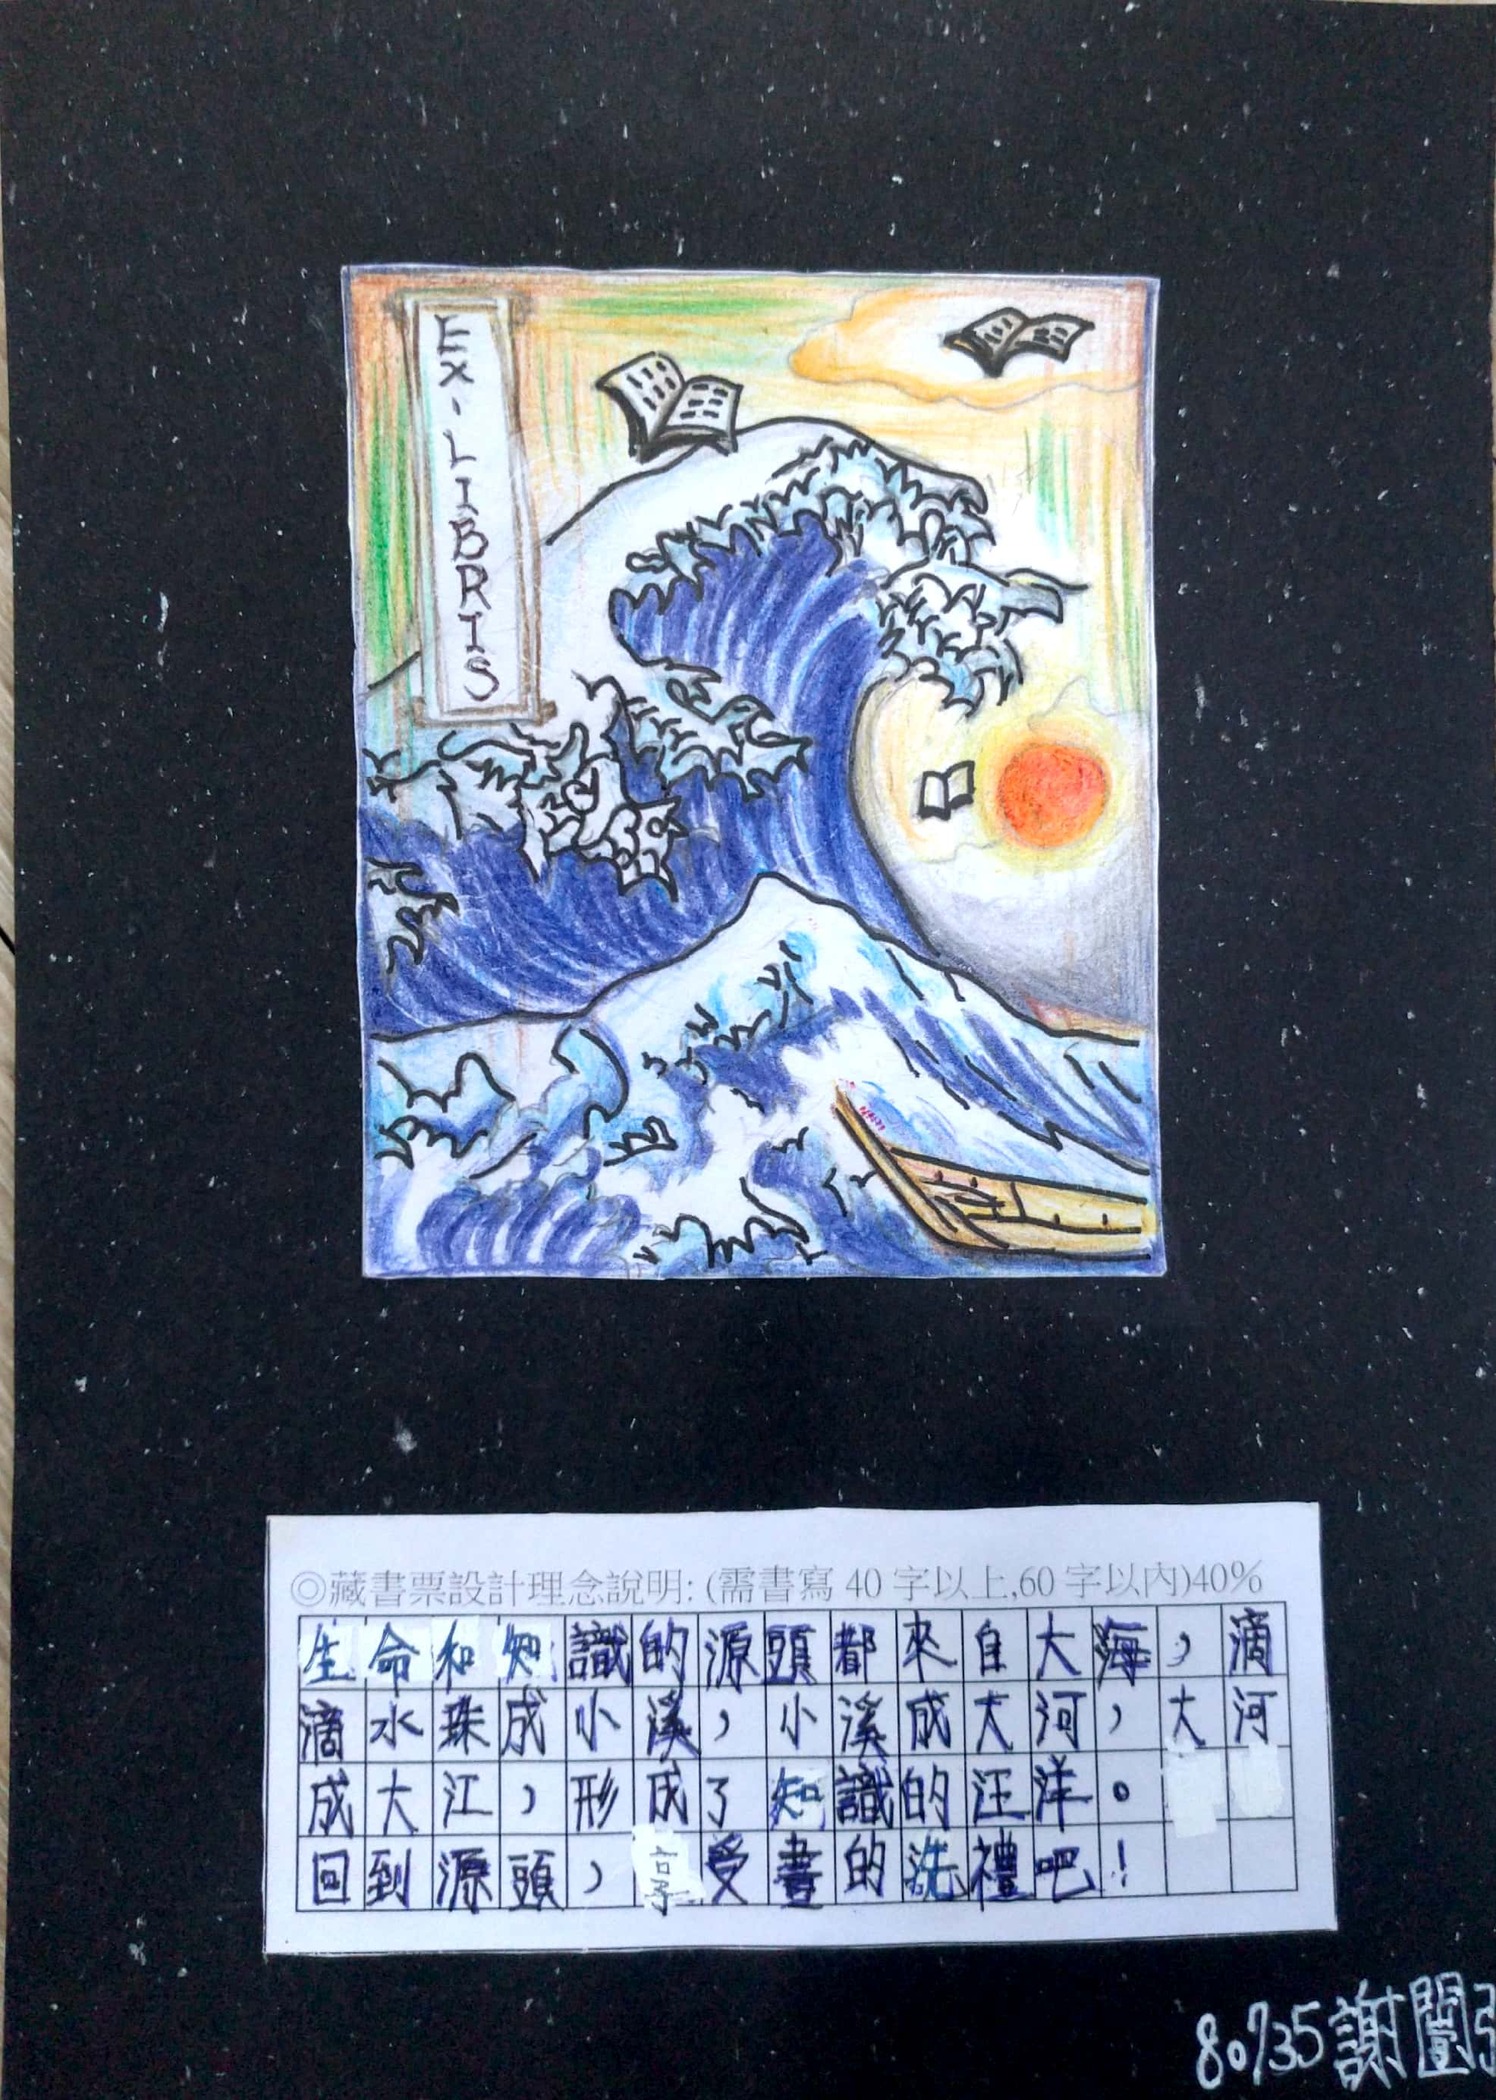 EX-LIBRIS
◎藏書票設計理念說明: (需書寫 40 字以上,60 字以內)40%
生命和知識的源頭都來自大海，滴
滴水珠成小溪，小溪成大河，大河
成大江，形成了知識的汪洋。
回到源頭，享受書的洗禮吧！
80735謝